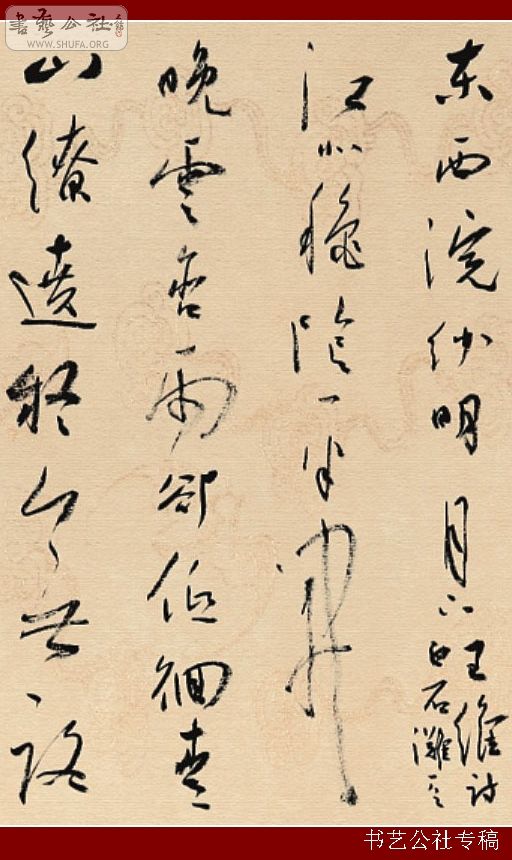 書藝公社
WWW.SHUFA.ORG
东西浣紗明月下
王維詩
白石灘
江北秋陰一半開
晚雲含雨卻低徊青
山繚遶疑無路
书艺公社专稿